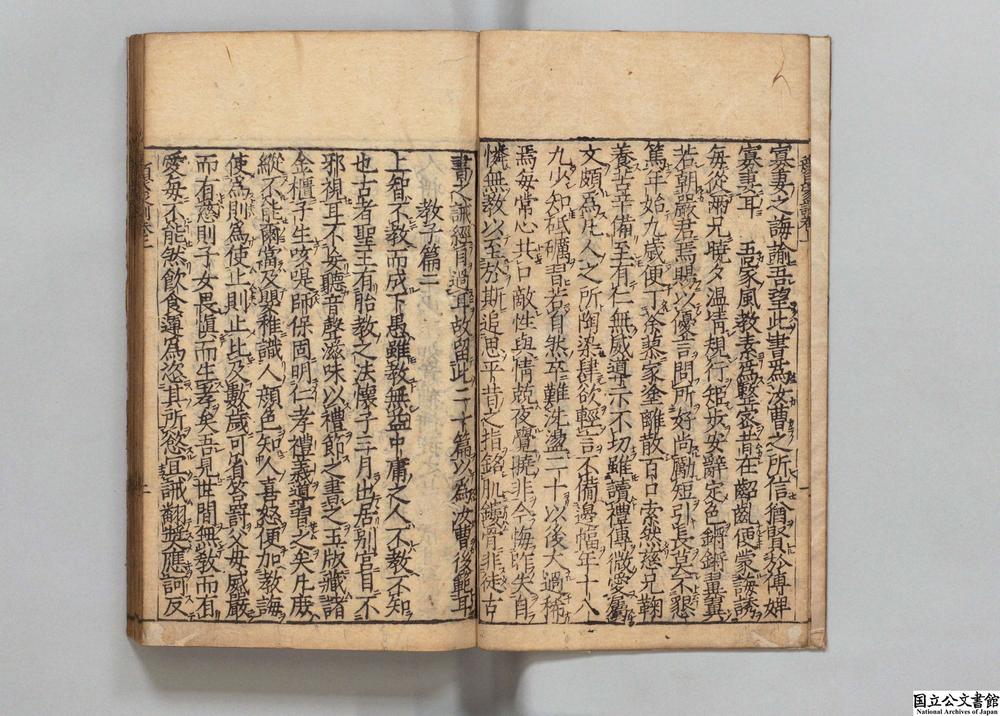 寡妻之誨諭吾望此書為汝曹之所信猶賢於傅婢
寡妻耳　吾家風教素為整密昔在齠齔便蒙誨誘
每從兩兄曉夕温凊規行矩步安辭定色鏘鏘翼翼
若朝嚴君焉賜以優言問所好尚勵短引長莫不懇
篤年始九歳便丁荼蓼家塗離散百口索然慈兄鞠
養苦辛備至有仁無威導示不切雖讀禮傳微愛屬
文頗為凡人之所陶染肆欲輕言不備邊幅年十八
九少知砥礪習若自然卒難洗盪二十以後大過稀
焉每常心共口敵性與情競夜覺曉非今悔昨失自
憐無教以至於斯追思平昔之指銘肌鏤骨非徒古
書之誡經目過耳故留此二十篇以為汝曹後範耳
教子篇二
上智不教而成下愚雖教無益中庸之人不教不知
也古者聖王有胎教之法懷子三月出居別宮目不
邪視耳不妄聽音聲滋味以禮節之書之玉版藏諸
金櫃子生咳㖷師保固明仁孝禮義導習之矣凡庶
縱不能爾當及嬰稚識人顔色知人喜怒便加教誨
使為則為使止則止比及數歳可省笞罰父母威嚴
而有慈則子女畏慎而生孝矣吾見世間無教而有
愛每不能然飲食運為恣其所慾宜誡翻奬應訶反
国立公文書館
National Archives of Japan